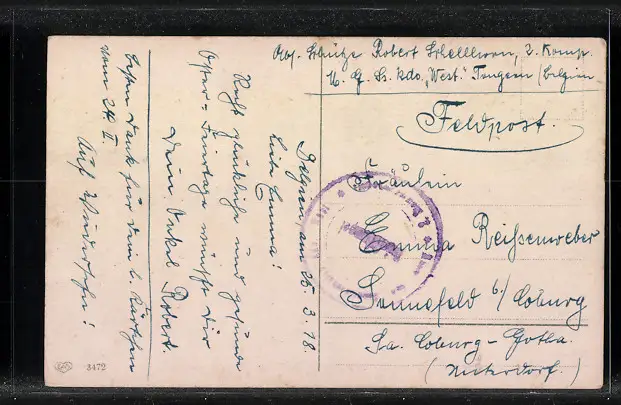 Abs. Schütze Robert Schellhorn, 2. Komp.
M. G. S. Kdo. „West." Tongern (Belgien
Feldpost.
Fräulein
Emma Reißenweber
Sonnefeld b/ Coburg
Sa. Coburg-Gotha.
Belgien am 25.3.18.
Liebe Emma!
Recht glückliche und gesunde
Oster-Feiertage wünscht Dir
Dein Onkel Robert.
Besten Dank für Dein l. Kärtchen
vom 24. II.
Auf Wiedersehen!
3472